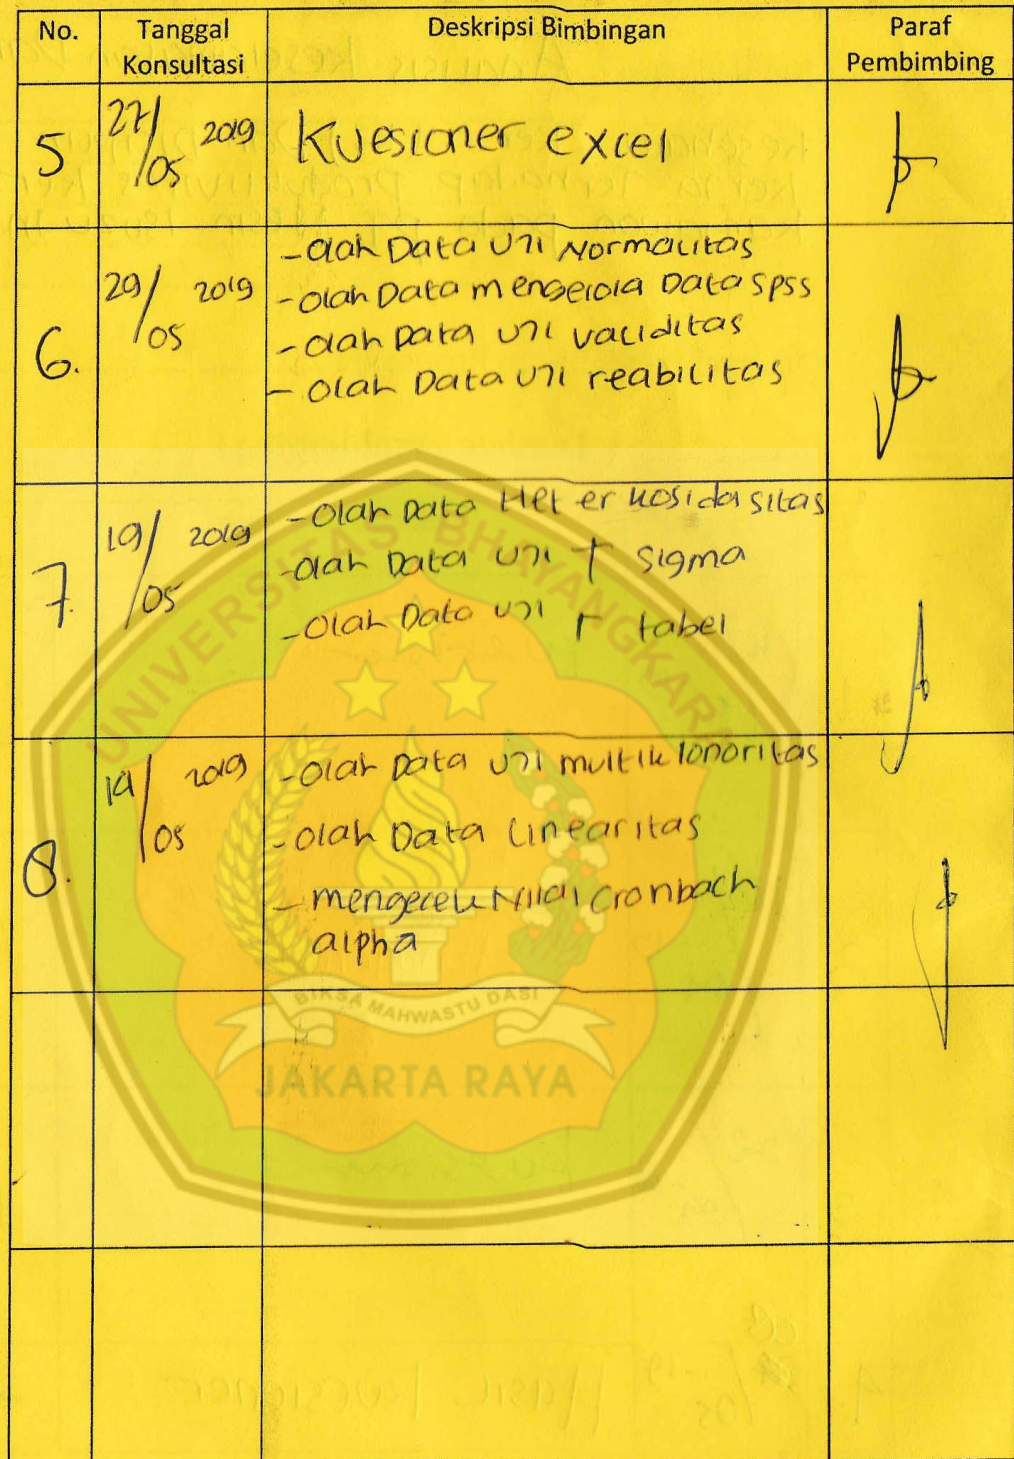 No. Tanggal Konsultasi Deskripsi Bimbingan Paraf Pembimbing
5 27/05 2019 Kuesioner excel
6. 29/05 2019
-Olah Data Uji Normalitas
-Olah Data mengelola Data SPSS
-Olah Data Uji validitas
-Olah Data Uji reabilitas
7. 19/05 2019
-Olah Data Heterkosidasitas
-Olah Data Uji T sigma
-Olah Data Uji r tabel
8. 19/05 2019
-Olah Data Uji multiklonoritas
-Olah Data Linearitas
-mengecek Nilai Cronbach
alpha
UNIVERSITAS BHAYANGKARA
BIKSA MAHWASTU DASI
JAKARTA RAYA